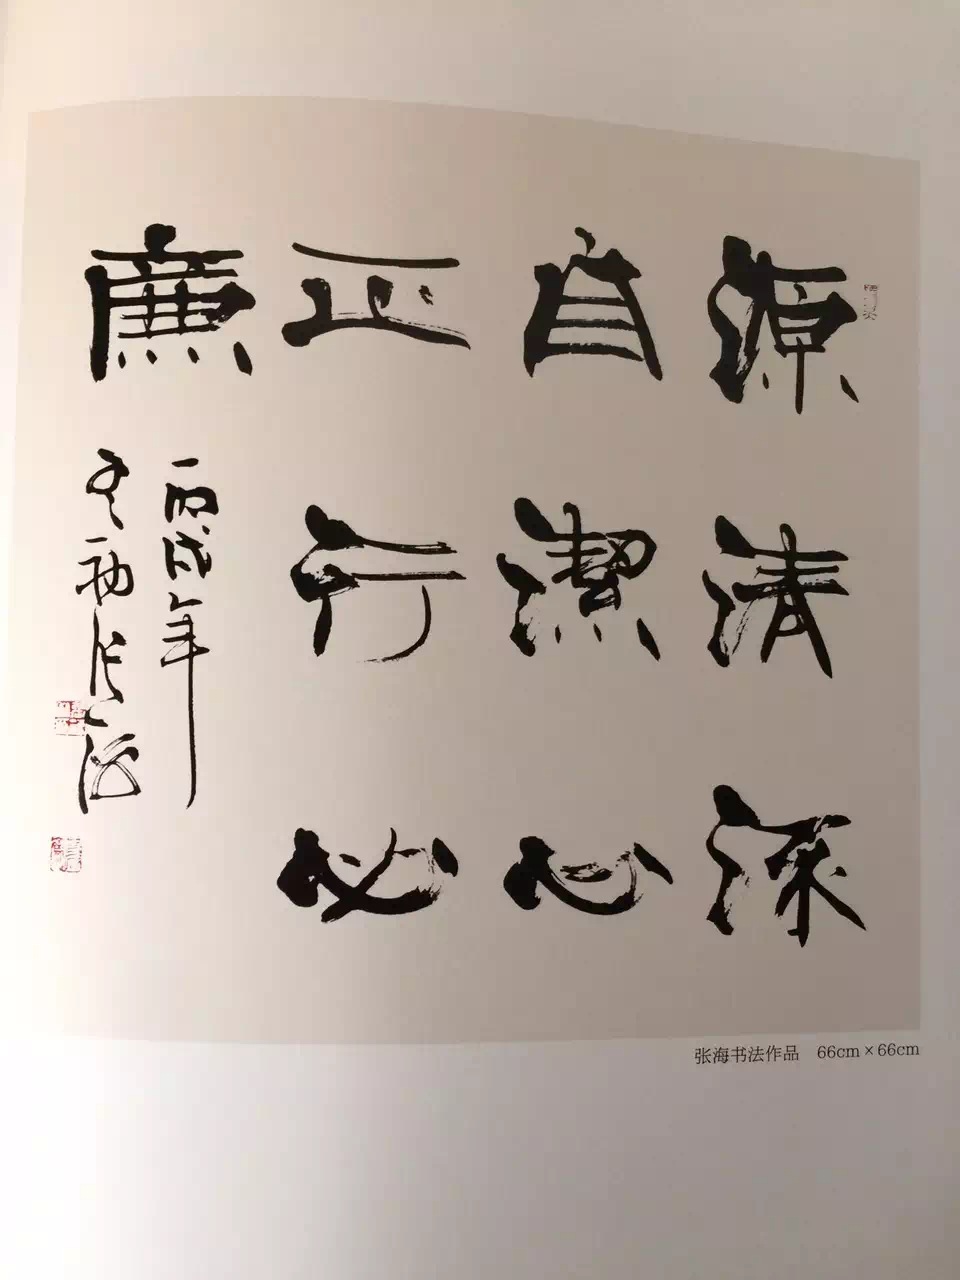 源清流
自潔心
正行必
廉
丙戌年
初张海
张海书法作品 66cm×66cm